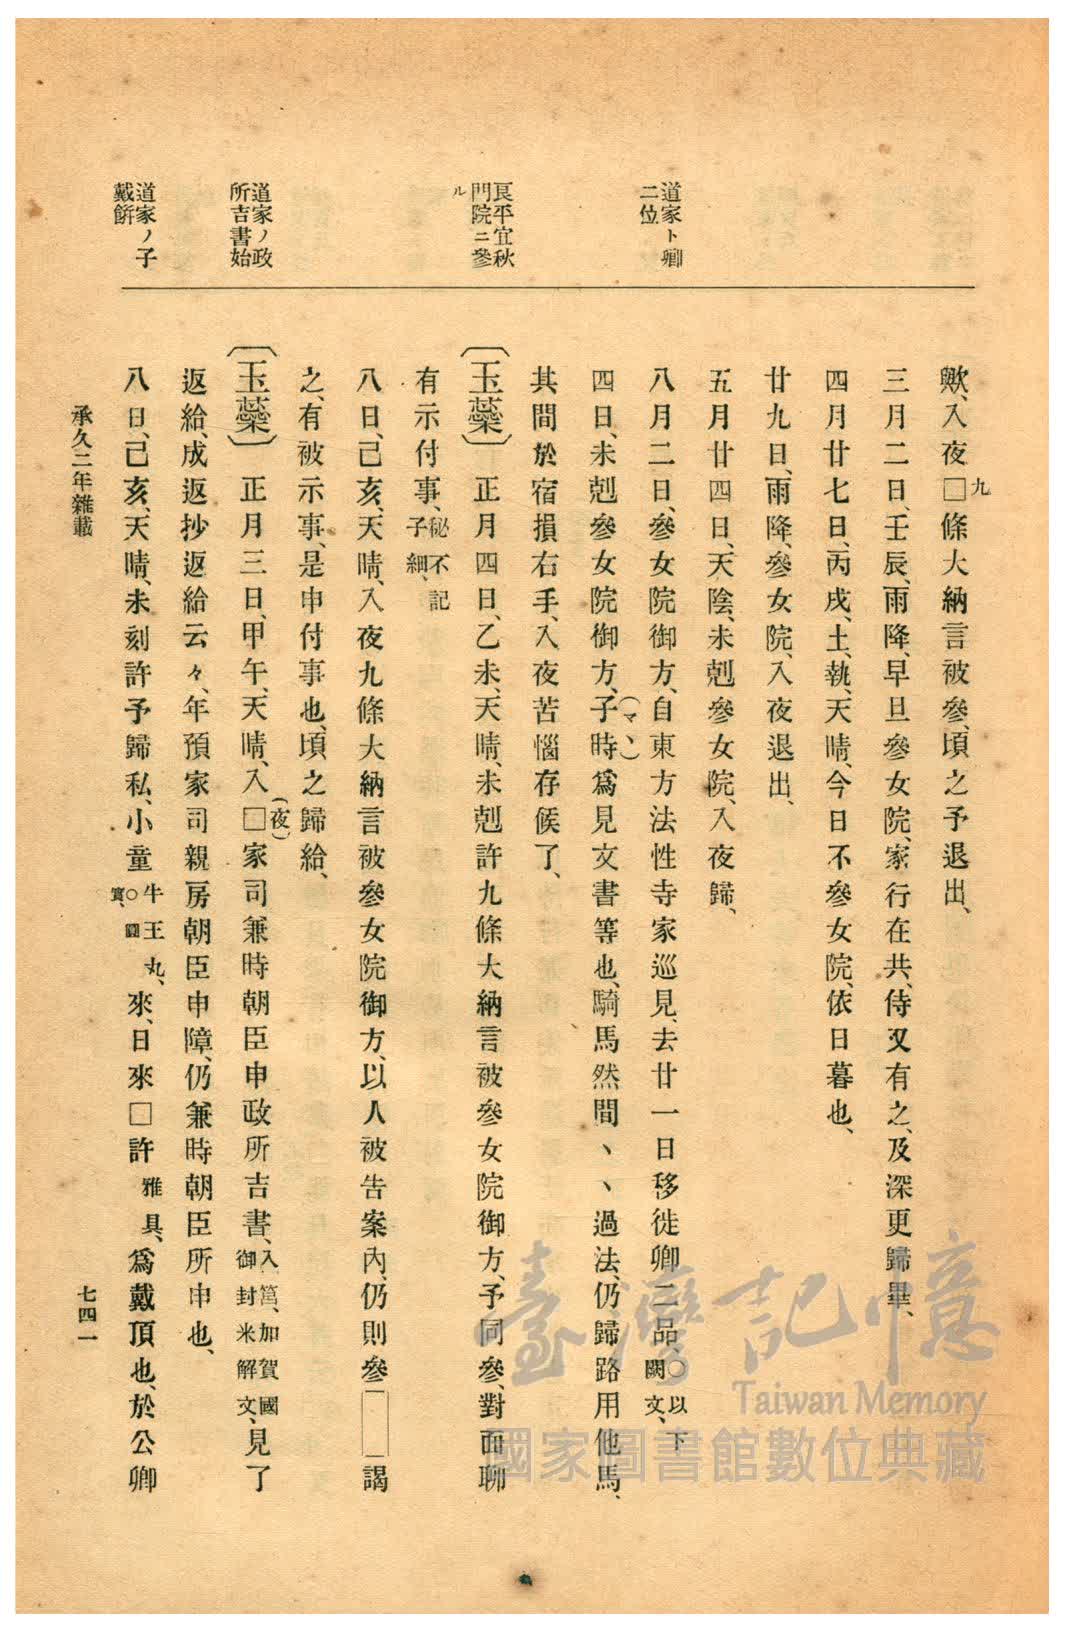 道家ト卿
二位
良平宜秋
門院ニ參
ル
道家ノ政
所吉書始
道家ノ子
戴餠
歟、入夜□九條大納言被參、頃之予退出、
三月二日、壬辰、雨降、早旦參女院、家行在共、侍又有之、及深更歸畢、
四月廿七日、丙戌、土、執、天晴、今日不參女院、依日暮也、
廿九日、雨降、參女院、入夜退出、
五月廿四日、天陰、未剋參女院、入夜歸、
八月二日、參女院御方、自東方法性寺家巡見、去廿一日移徙卿二品○以下闕文、
四日、未剋參女院御方、子(マヽ)時爲見文書等也、騎馬然間、、過法、仍歸路用他馬、
其間於宿損右手、入夜苦惱存候了、
〔玉蘂〕 正月四日、乙未、天晴、未剋許九條大納言被參女院御方、予同參、對面聊
有示付事、秘不記子細、
八日、己亥、天晴、入夜九條大納言被參女院御方、以人被告案內、仍則參□謁
之、有被示事、是申付事也、頃之歸給、
〔玉蘂〕 正月三日、甲午、天晴、入□(夜)家司兼時朝臣申政所吉書、入筥、加賀國御封米解文、見了
返給、成返抄返給云々、年預家司親房朝臣申障、仍兼時朝臣所申也、
八日、己亥、天晴、未刻許予歸私、小童牛王丸、○圓實、來、日來□許雅具、爲戴頂也、於公卿
承久二年雜載
七四一
臺灣記憶
Taiwan Memory
國家圖書館數位典藏